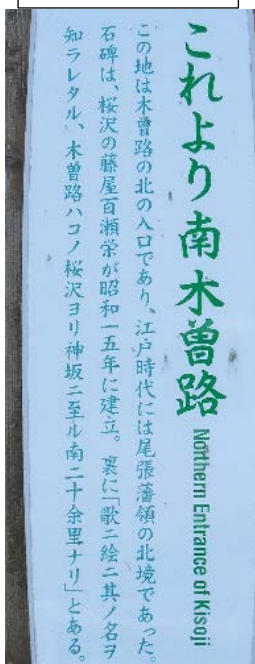 これより南木曽路 Northern Entrance of Kisoji
この地は木曽路の北の入口であり、江戸時代には尾張藩領の北境であった。
石碑は、桜沢の藤屋百瀬栄が昭和一五年に建立。裏に「歌ニ絵ニ其ノ名ヲ
知ラレタル、木曽路ハコノ桜沢ヨリ神坂ニ至ル南二十余里ナリ」とある。